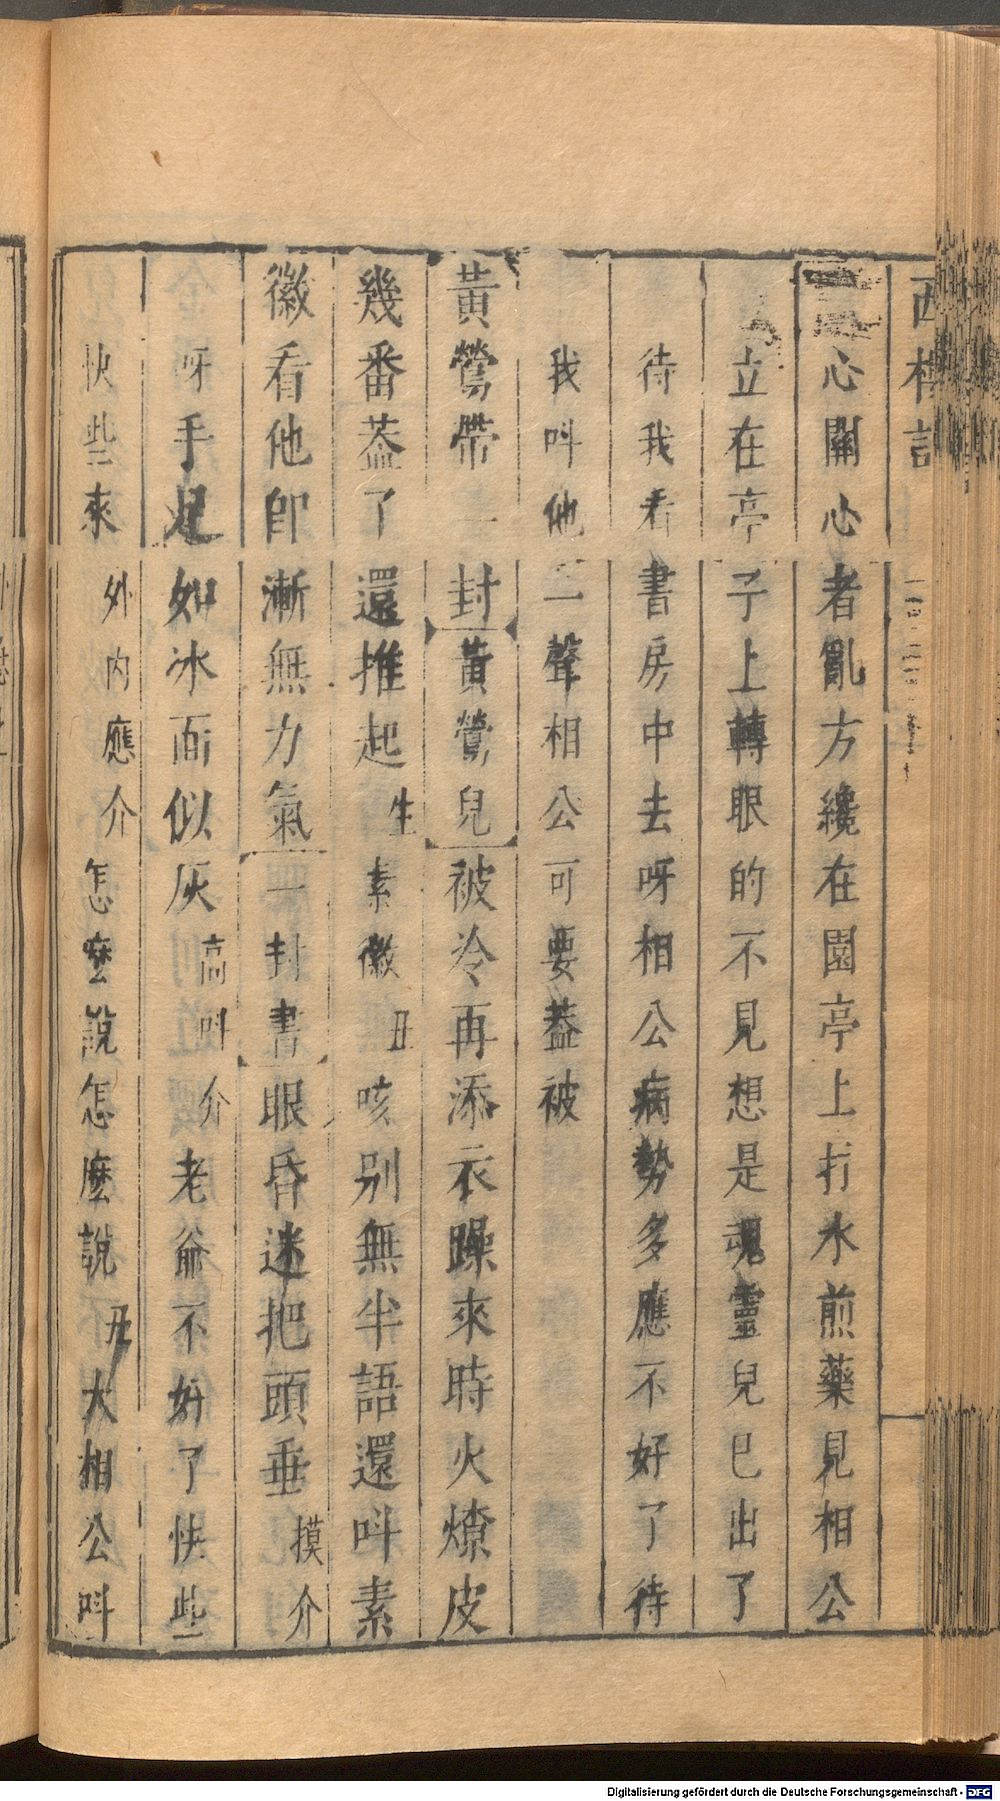 西樓記
心關心者亂方纔在園亭上打水煎藥見相公
立在亭子上轉眼的不見想是魂靈兒已出了
待我看書房中去呀相公病勢多應不好了待
我叫他一聲相公可要蓋被
黃鶯帶一封黃鶯兒被冷再添衣躁來時火燎皮
幾番葢了還推起生素徽丑咳别無半語還叫素
徽看他卽漸無力氣一封書眼昏迷把頭垂摸介
呀手足如冰面似灰高叫介老爺不好了快些
快些來外內應介怎麼說怎麼說丑大相公叫
Digitalisierung gefördert durch die Deutsche Forschungsgemeinschaft - DFG